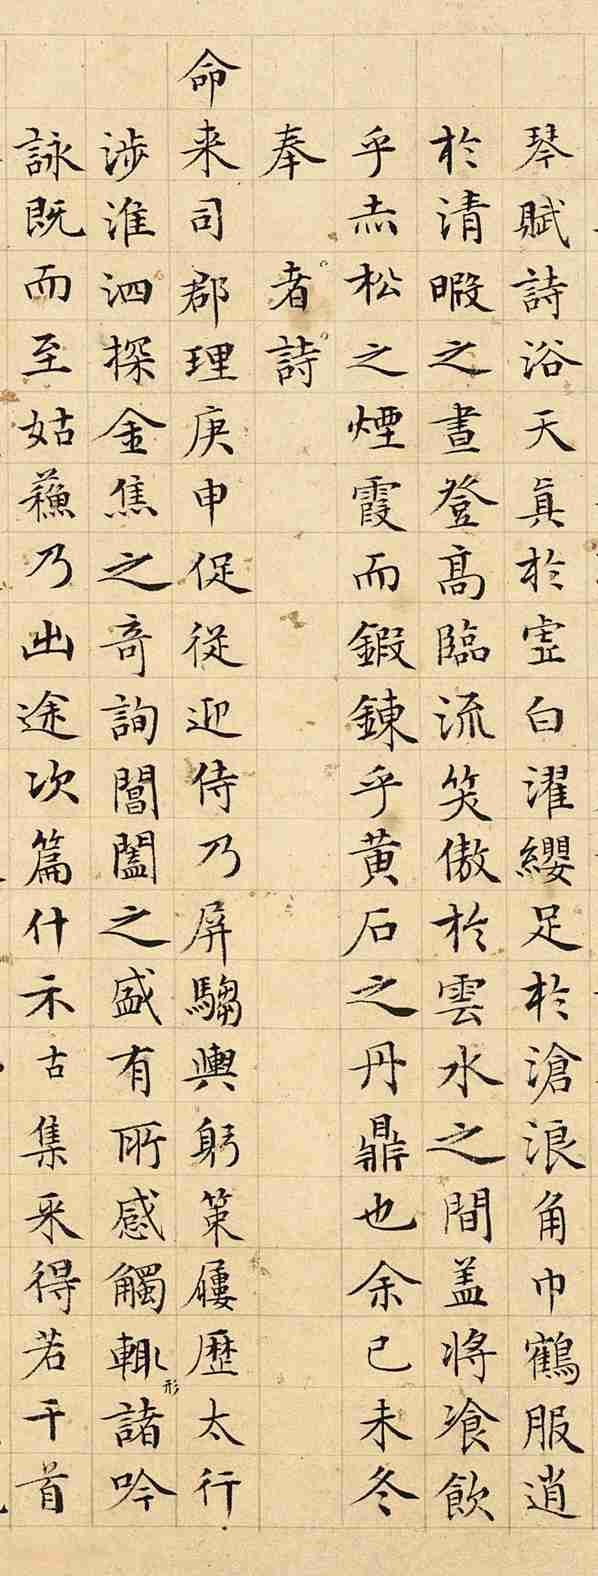 琴賦詩浴天真於虛白濯纓足於滄浪角巾鶴服逍
於清暇之晝登高臨流笑傲於雲水之間盖將飡飲
乎赤松之煙霞而鍜鍊乎黃石之丹鼎也余己未冬
奉者詩
命来司郡理庚申促從迎侍乃屏騶輿躬策屨歷太行
涉淮泗探金焦之奇詢閶闔之盛有所感觸輙形諸吟
詠既而至姑蘓乃出途次篇什示古集采得若干首